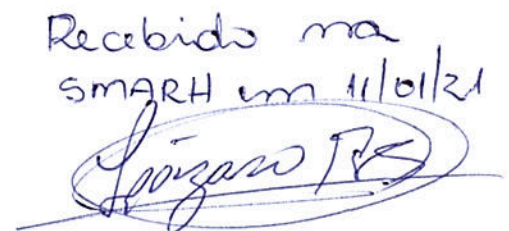 Recebido na
SMARH em 11/01/21